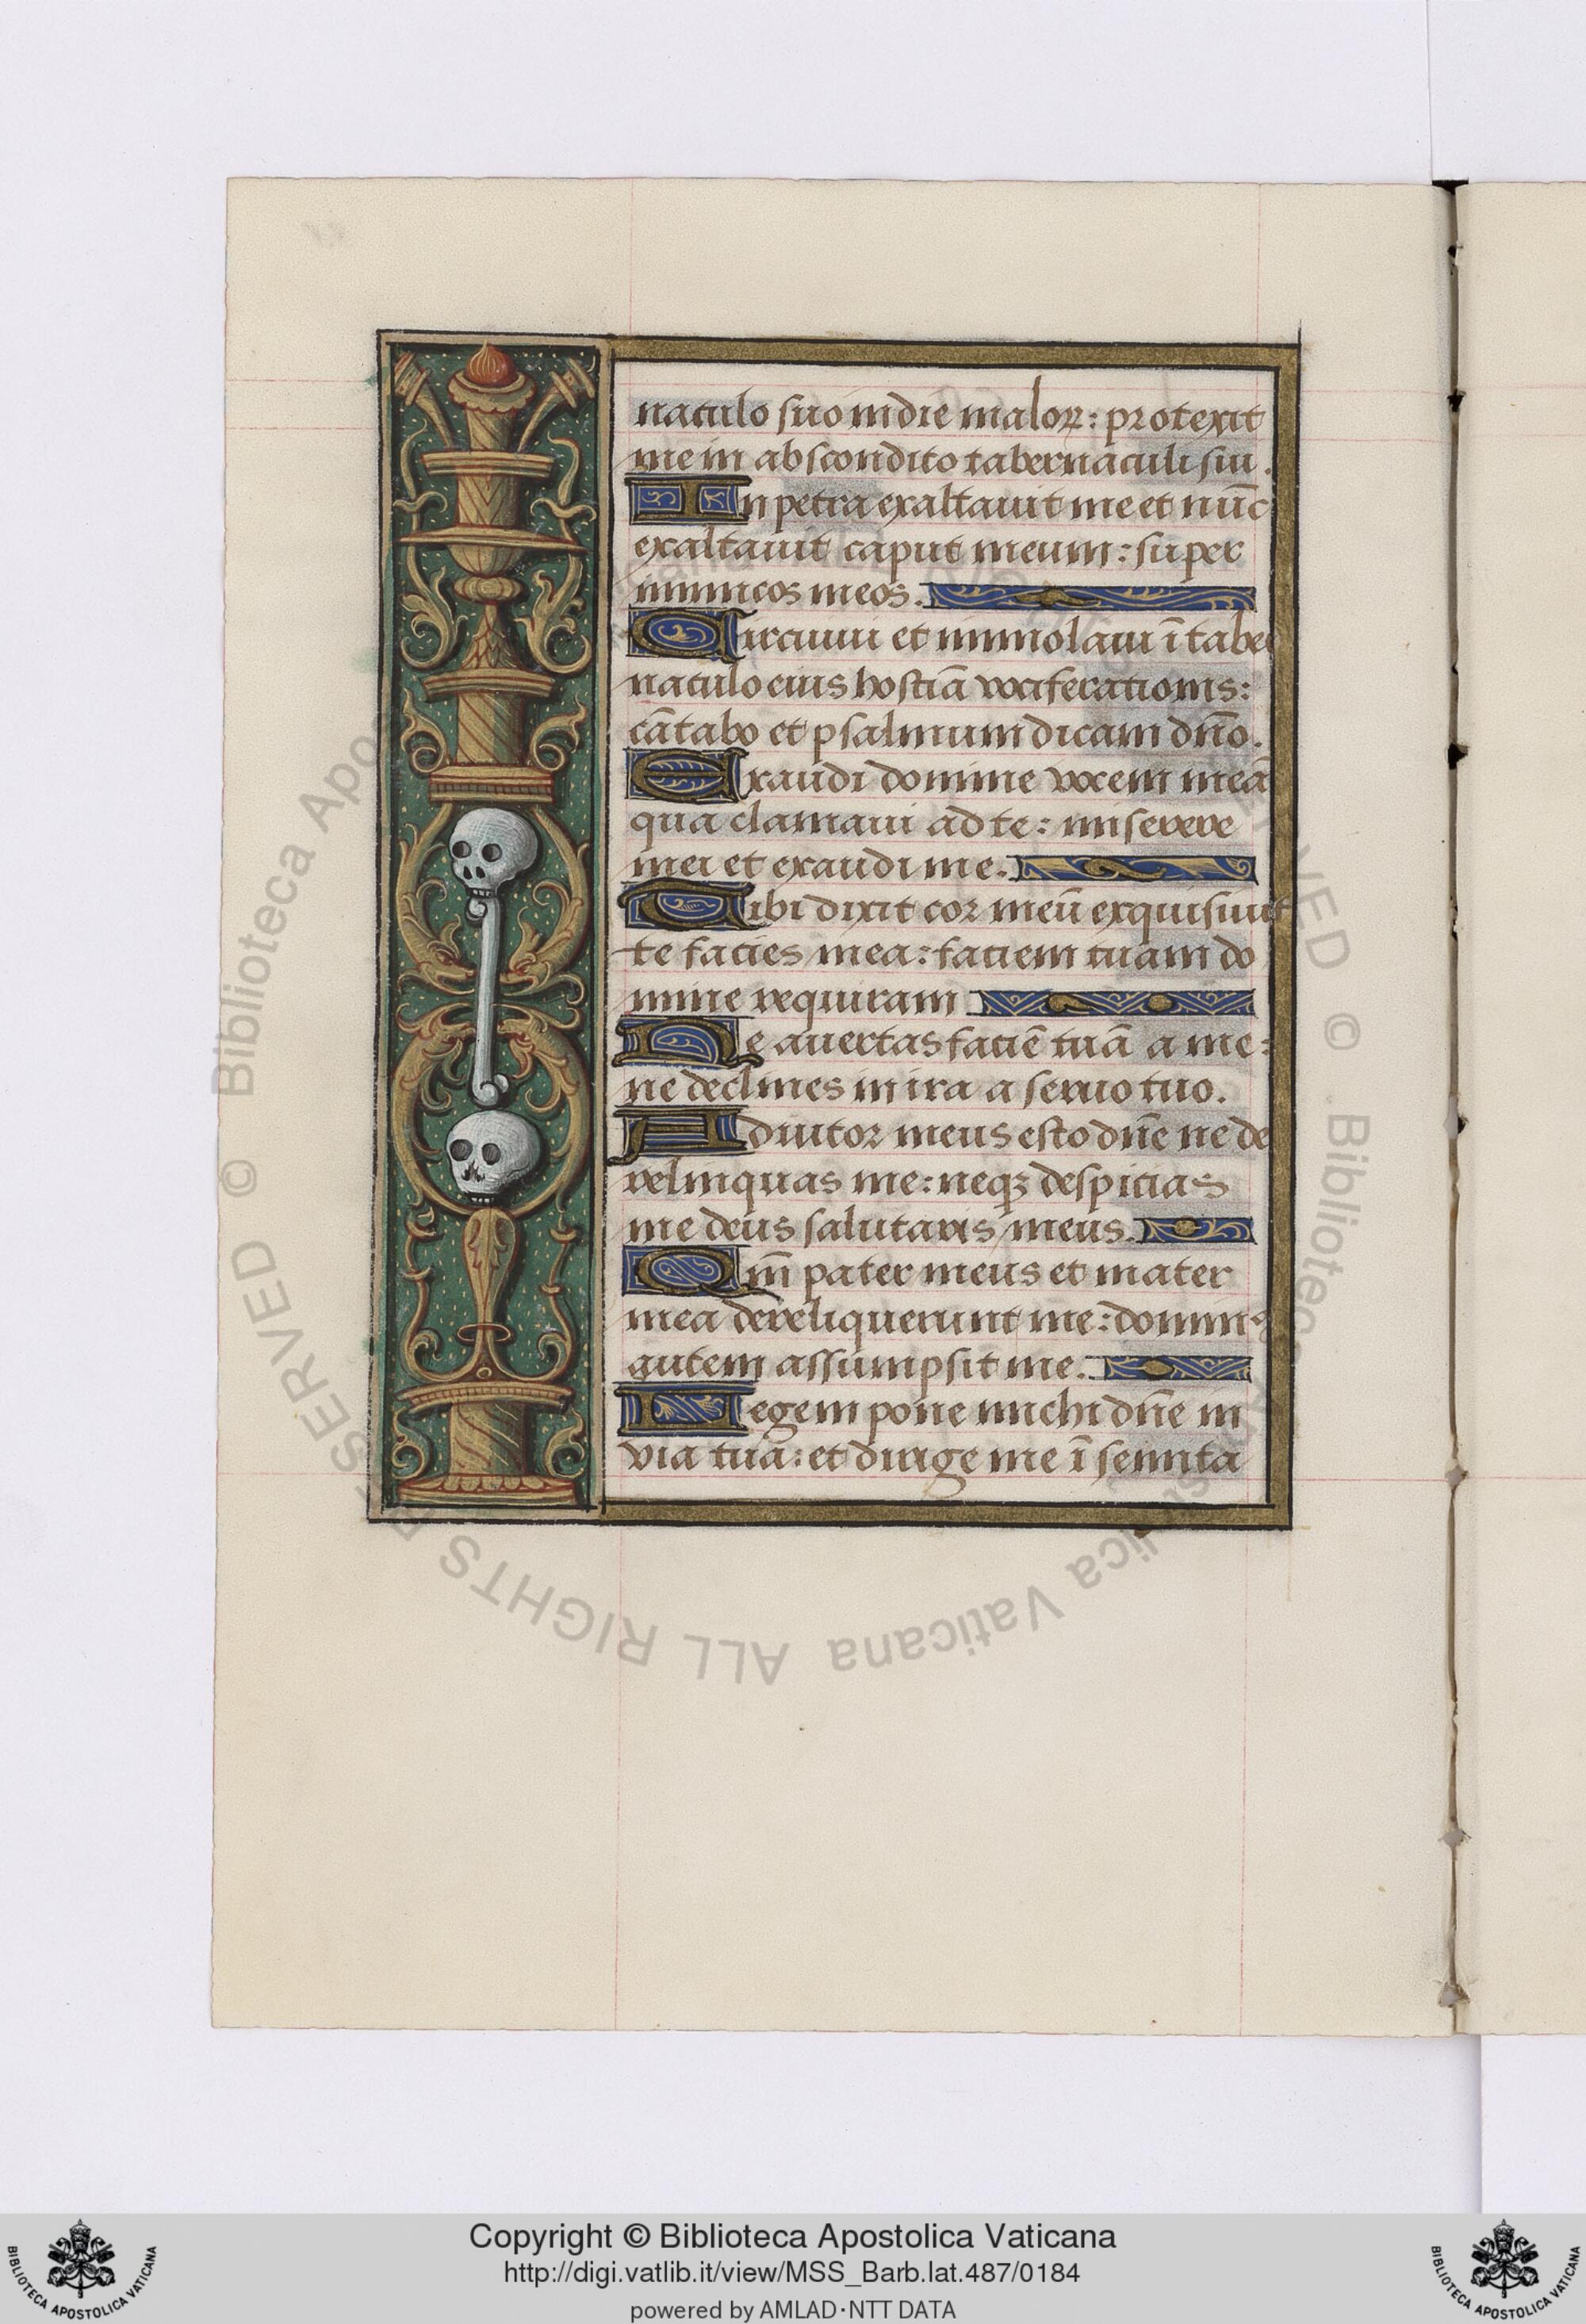 naculo suo in die maloꝝ: protexit
me in abscondito tabernaculi sui.
In petra exaltauit me et nūc
exaltauit caput meum: super
inimicos meos.
Circuiui et immolaui ī tabe
naculo eius hostiā vociferationis:
cātabo et psalmum dicam dn̄o.
Exaudi domine vocem meā
qua clamaui ad te: miserere
mei et exaudi me.
Tibi dixit cor meū exquisiuit
te facies mea: faciem tuam do
mine requiram
Ne auertas faciē tuā a me:
ne declines in ira a seruo tuo.
Adiutor meus esto dn̄e ne de
relinquas me: neqꝫ despicias
me deus salutaris meus.
Qm̄ pater meus et mater
mea dereliquerunt me: dominꝰ
autem assumpsit me.
Legem pone michi dn̄e in
via tua: et dirige me ī semita
© Biblioteca Apostolica Vaticana ALL RIGHTS RESERVED
Copyright © Biblioteca Apostolica Vaticana
http://digi.vatlib.it/view/MSS_Barb.lat.487/0184
powered by AMLAD·NTT DATA
BIBLIOTECA APOSTOLICA VATICANA
BIBLIOTECA APOSTOLICA VATICANA